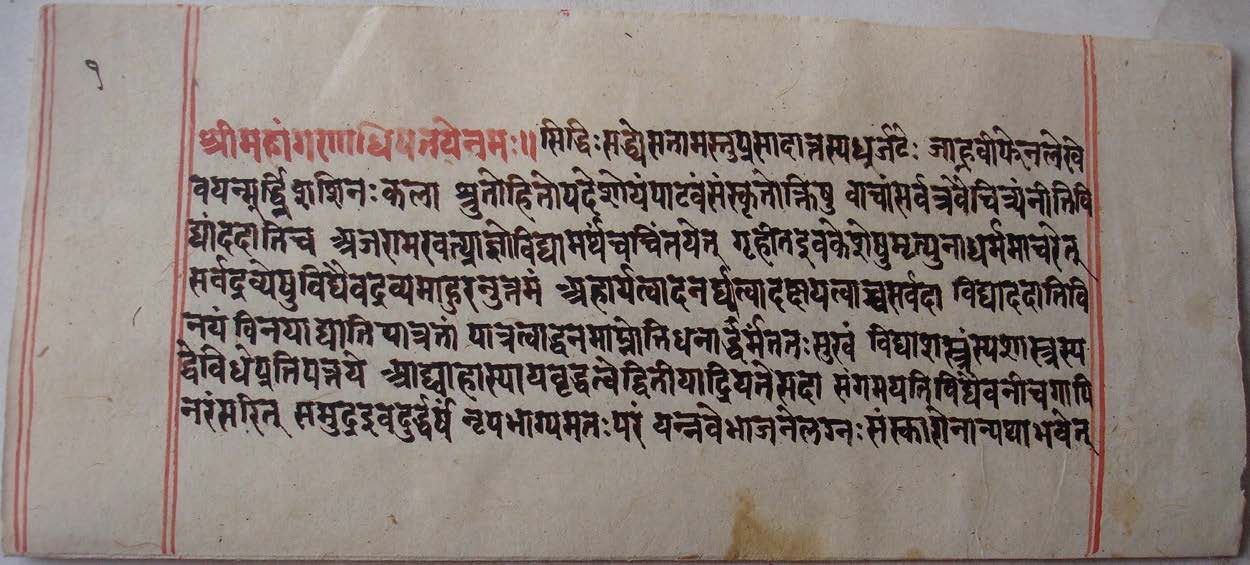 १
श्रीमहांगणाधिपतयेनमः॥ सिद्धिःसद्ध्येसतामस्तुप्रसादात्तस्यधूर्जटेः जाह्नवीफेनलेखे
वयन्मूर्द्ध्निशशिनःकला श्रुतोहितोपदेशोयंपाटवंसंस्कृतोक्तिषु वाचांसर्वत्रवैचित्र्यंनीतिवि
द्यांददातिच अजरामरवत्प्राज्ञोविद्यामर्थंचचिंतयेत् गृहीतइवकेशेषुमृत्युनाधर्ममाचरेत्
सर्वद्रव्येषुविद्यैवद्रव्यमाहुरनुत्तमं अहार्यत्वादनर्घ्यत्वादक्षयत्वाच्चसर्वदा विद्याददातिवि
नयं विनयाद्याति पात्रतां पात्रत्वाद्धनमाप्नोतिधनार्द्धर्मंततःसुखं विद्याशस्त्रंस्यशास्त्रस्य
द्वेविधेप्रतिपत्तये आद्याहास्यायवृद्धत्वेद्वितीयाद्रियतेसदा संगमयतिविद्यैवनीचगापि
नरंसरित् समुद्रइवदुर्द्धर्षं नृपभाग्यमतःपरं यन्नवेभाजनेलग्नःसंस्कारोनान्यथाभवेत्